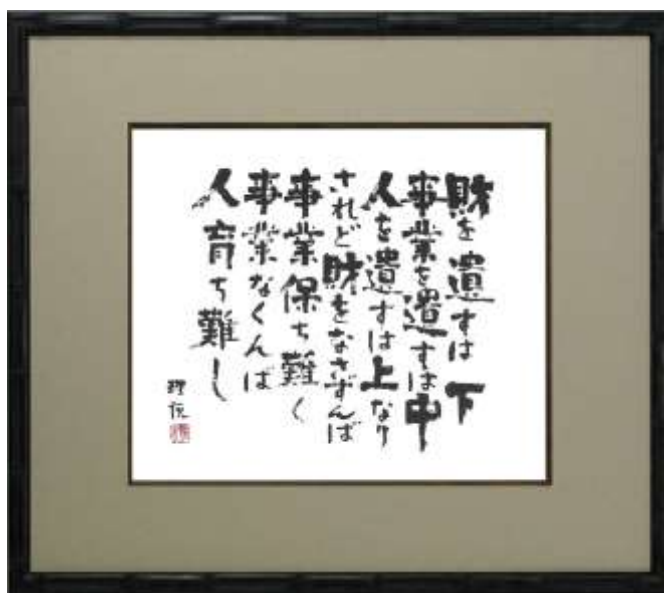 財を遺すは下
事業を遺すは中
人を遺すは上なり
されど財をなさずんば
事業保ち難く
事業なくんば
人育ち難し